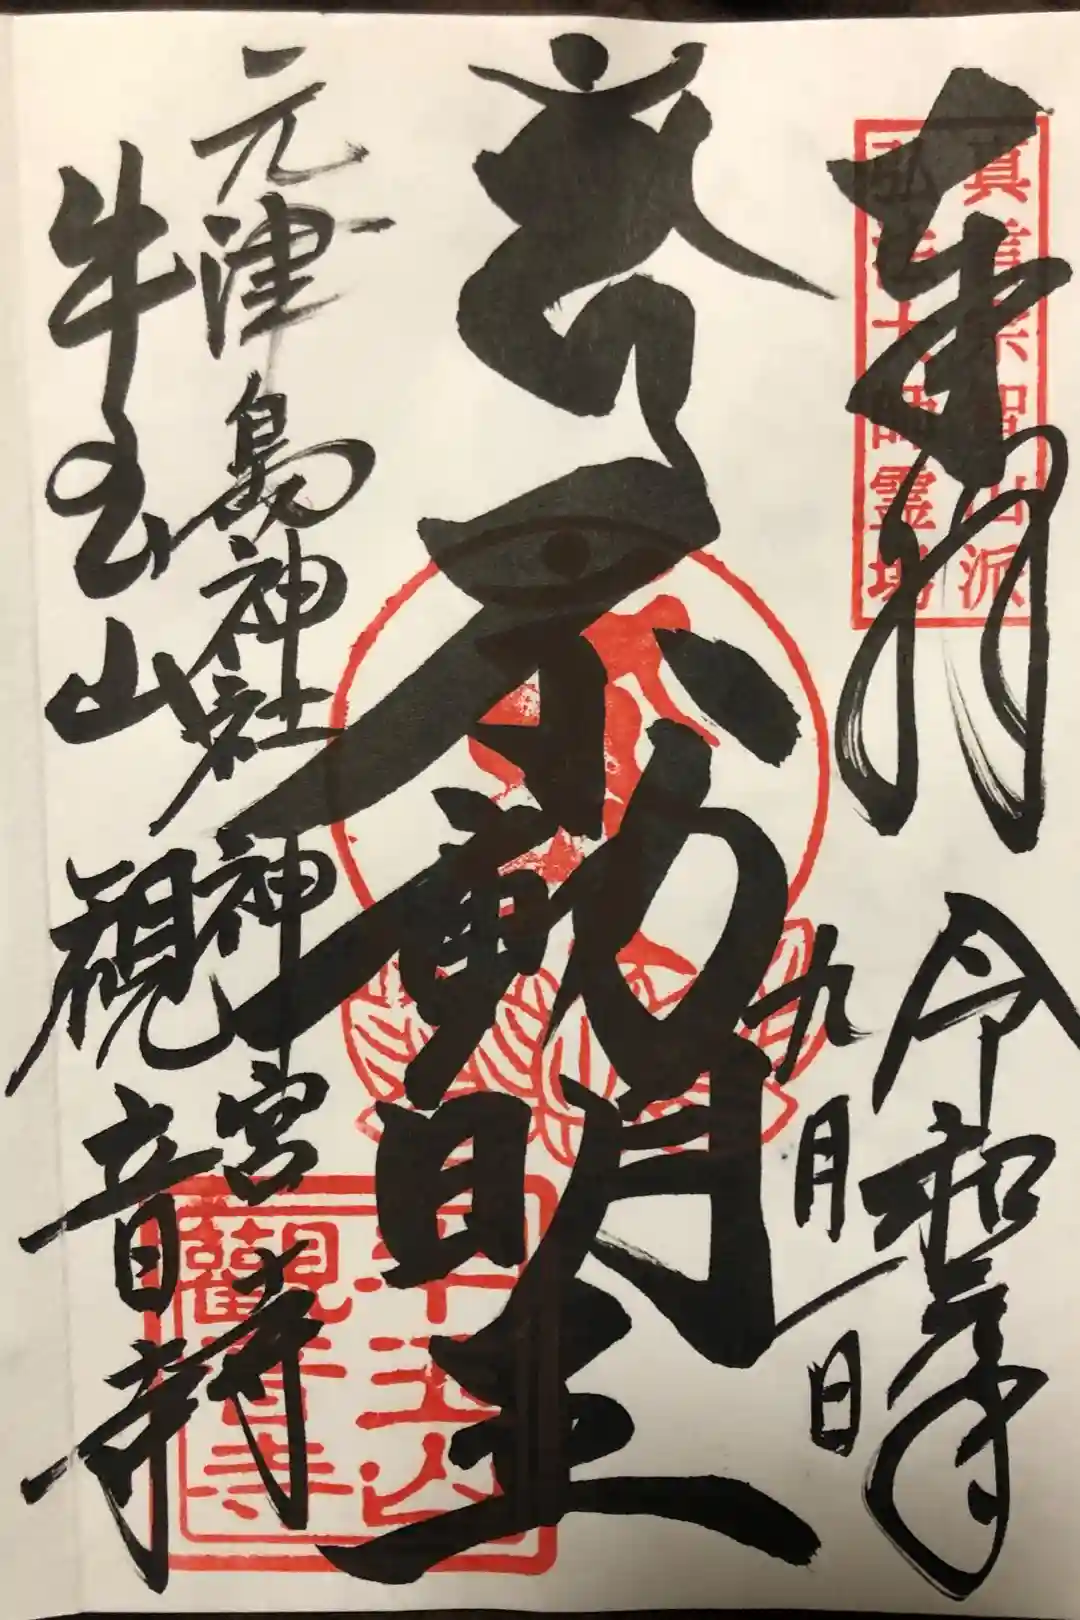 真言宗智山派
弘法大師霊場
奉拝
令和三年
九月一日
不動明王
元津島神社神宮寺
牛玉山観音寺
牛玉山
觀音寺